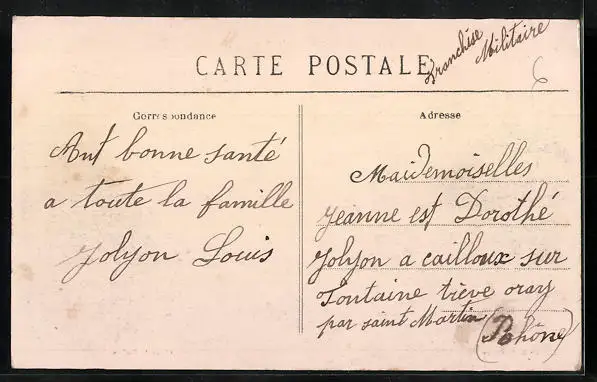 Branchise
Militaire
CARTE POSTALE
Correspondance
Adresse
Ant bonne santé
a toute la famille
Jolyon Louis
Maidemoiselles
Jeanne est Dorothé
Jolyon a cailloux sur
Fontaine trève oray
par saint Martin
(Rhône)